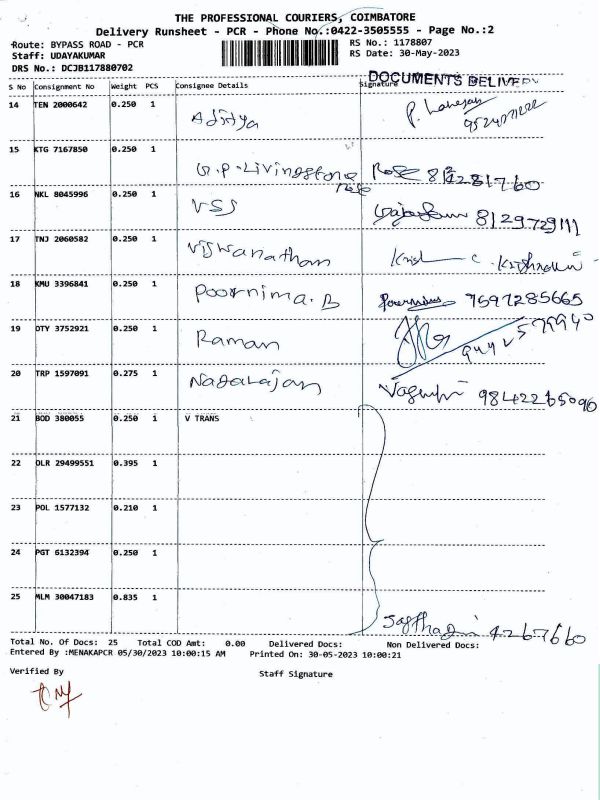 THE PROFESSIONAL COURIERS, COIMBATORE
Delivery Runsheet - PCR - Phone No.:0422-3505555 - Page No.:2
Route: BYPASS ROAD - PCR
RS No.: 1178807
Staff: UDAYAKUMAR
RS Date: 30-May-2023
DRS No.: DCJB117880702
DOCUMENTS DELIVERY
S No Consignment No Weight PCS Consignee Details Signature
14 TEN 2000642 0.250 1 Aditya
15 KTG 7167850 0.250 1 G.P. Livingstone Rose Rose
16 NKL 8045996 0.250 1 VSJ 8129729111
17 TNJ 2060582 0.250 1 Viswanathan Krish C. Krishnakumar
18 KMU 3396841 0.250 1 Poornima. B Poornima 7597285665
19 OTY 3752921 0.250 1 Raman
20 TRP 1597091 0.275 1 Nagarajan 9842265096
21 BOD 380055 0.250 1 V TRANS
22 DLR 29499551 0.395 1
23 POL 1577132 0.210 1
24 PGT 6132394 0.250 1
25 MLM 30047183 0.835 1 4267660
Total No. Of Docs: 25 Total COD Amt: 0.00 Delivered Docs: Non Delivered Docs:
Entered By :MENAKAPCR 05/30/2023 10:00:15 AM Printed On: 30-05-2023 10:00:21
Verified By
Staff Signature